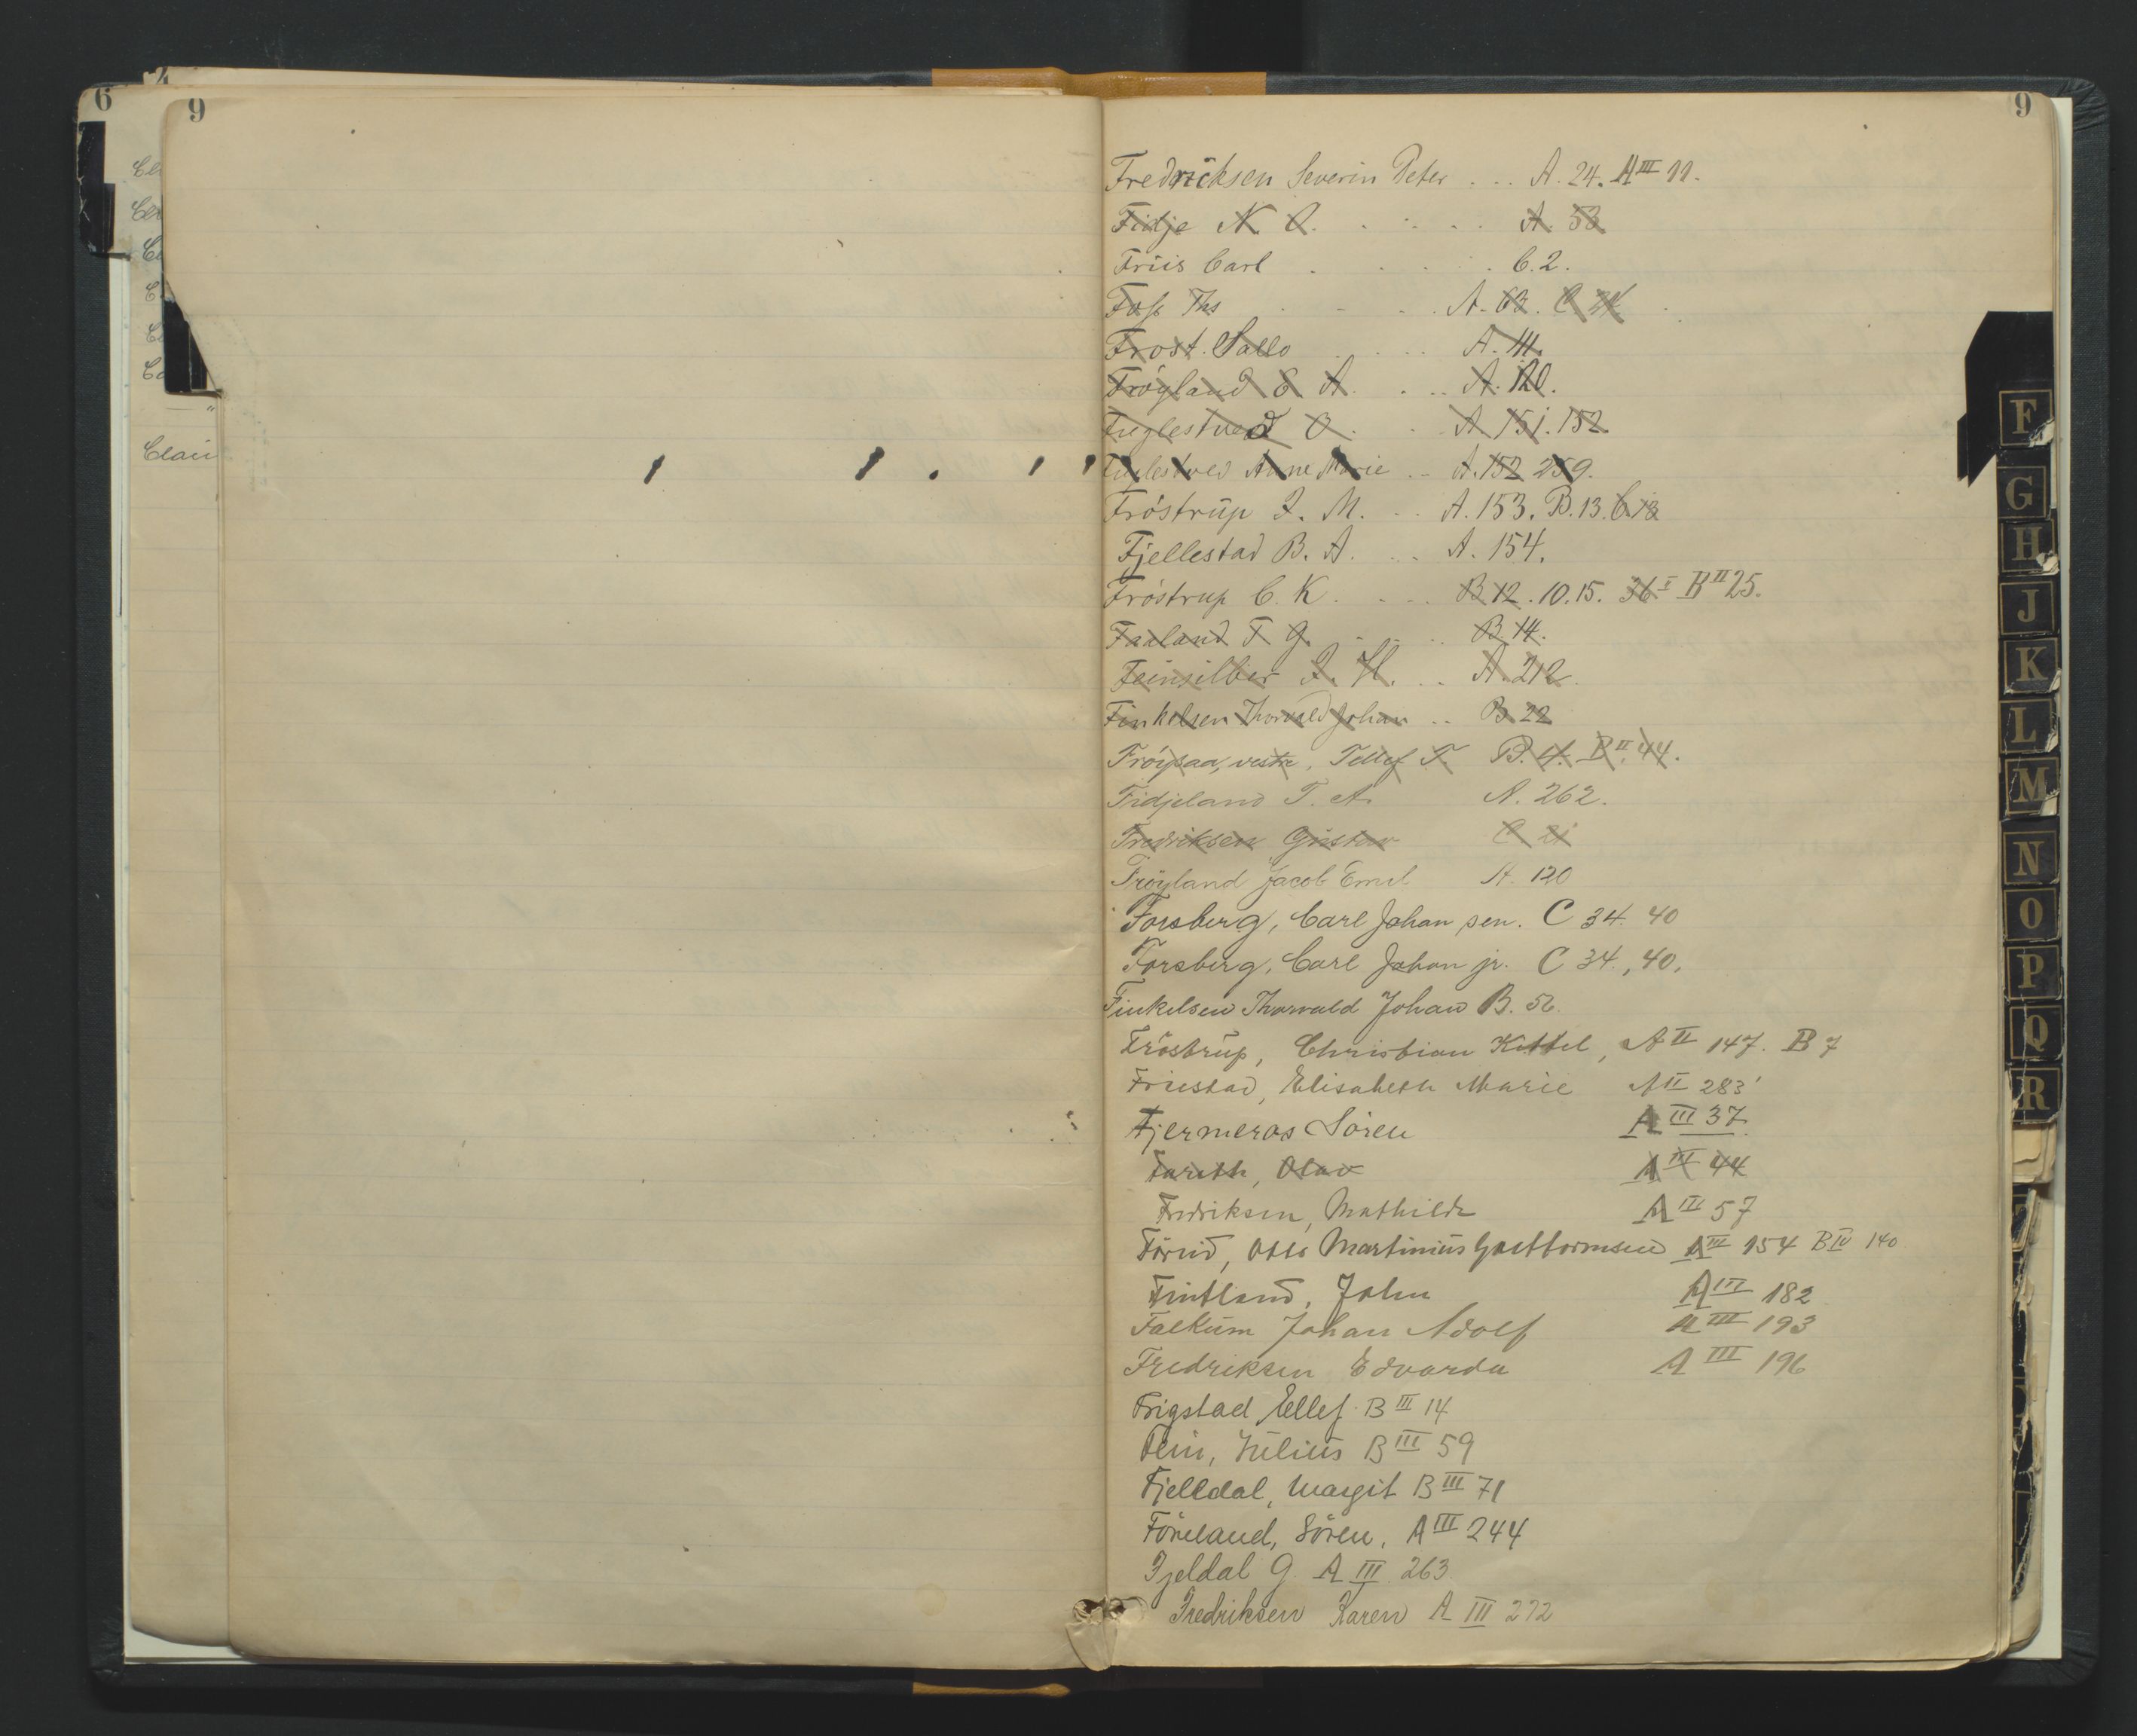 6
2
9
Cl
Cl
C
C
C
Ca
"
Clau
9
Fredricksen Severin Peter . . . A. 24. A III 11.
Fidje N. O. . . . . . A. 53
Friis Carl . . . . . C. 2.
Foss Ths . . . . A. 63. C 34
Frost. Sallo . . . . A. 111.
Fröyland E. A. . . . A. 120.
Fuglestved O. . A. 151. 152.
Fuglestved Anne Marie . . A. 152 259.
Fröstrup J. M. . . A. 153. B. 13. C. 13
Fjellestad B. A. . . . A. 154.
Fröstrup C. K. . . . B 12. 10. 15. 36. I B II 25.
Faaland F. G. . . . B. 14.
Feinsilber J. H. . . A. 212.
Finkelsen Thorvald Johan . . B. 22
Fröysaa, vestre, Tellef T. B. 4. B II. 44.
Fidjeland T. A. A. 262.
Fredriksen Gustav C 21
Fröyland Jacob Emil A. 120
Forsberg, Carl Johan sen. C 34. 40
Forsberg, Carl Johan jr. C 34., 40.
Finkelsen Thorvald Johan B. 56.
Fröstrup, Christian Kittel, A II 147. B 7
Friestad, Elisabeth Marie A II 283
Fjermeros Sören A III 37
Fareth, Olav A III 44
Fredriksen, Mathilde A III 57
Förrid, Otto Martinius Guttormsen A III 154 B IV 140
Fintland, John A III 182
Falkum Johan Adolf A III 193
Fredriksen Edvarda A III 196
Frigstad Ellef B III 14
Fein, Julius B III 59
Fjelldal, Margit B III 71
Föreland, Sören, A III 244
Fjeldal G. A III 263
Fredriksen Karen A III 272
F
G
H
J
K
L
M
N
O
P
Q
R